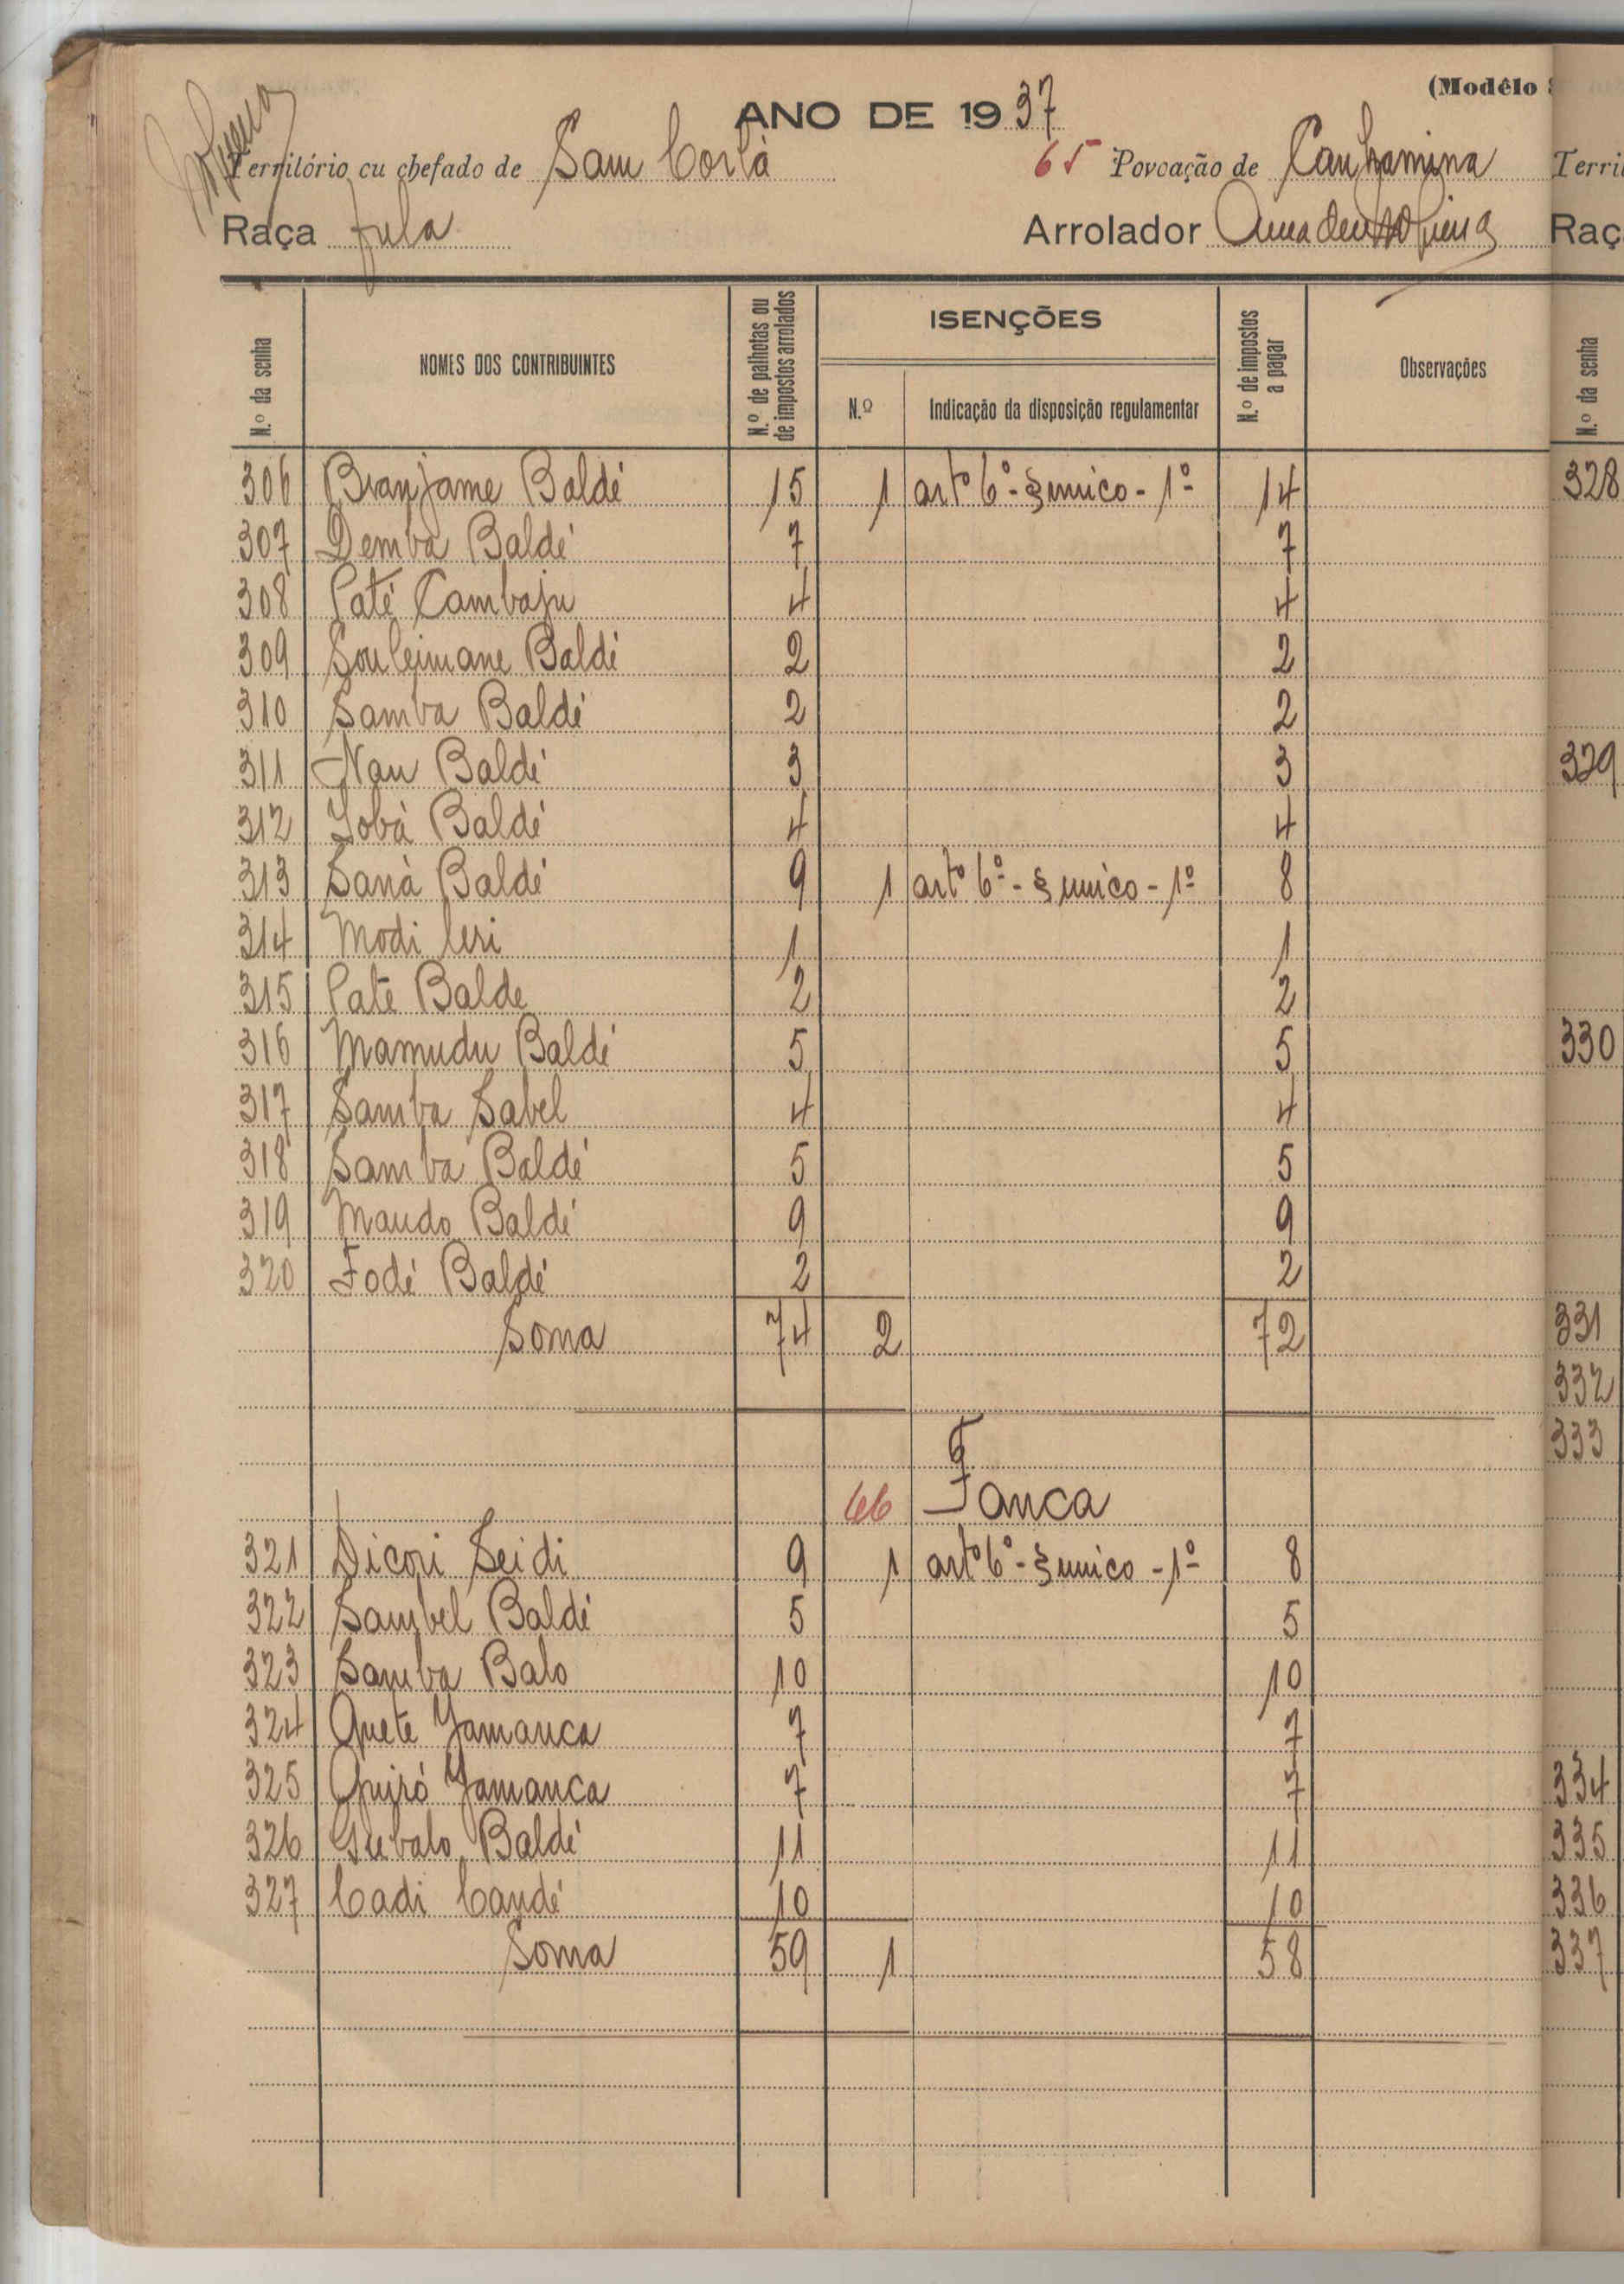 (Modêlo
ANO DE 1937
Território ou chefado de Sam Corlà 65 Povoação de Canhamina
Raça Fula Arrolador
N.º da senha NOMES DOS CONTRIBUINTES N.º de palhotas ou de impostos arrolados ISENÇÕES N.º Indicação da disposição regulamentar N.º de impostos a pagar Observações
306 Branjame Baldé 15 1 artº 6º - § unico - 1º 14
307 Demba Baldé 7 7
308 Paté Cambaju 4 4
309 Souleimane Baldé 2 2
310 Samba Baldé 2 2
311 Nau Baldé 3 3
312 Iobà Baldé 4 4
313 Sanà Baldé 9 1 artº 6º - § unico - 1º 8
314 Modi Ieri 1 1
315 Paté Balde 2 2
316 Mamudu Baldé 5 5
317 Samba Sabel 4 4
318 Samba Baldé 5 5
319 Maudo Baldé 9 9
320 Fodé Baldé 2 2
Soma 74 2 72
66 Fanca
321 Dicori Seidi 9 1 artº 6º - § unico - 1º 8
322 Sambel Baldé 5 5
323 Samba Balo 10 10
324 Quete Jamanca 7 7
325 Quiró Jamanca 7 7
326 Gubalo Baldé 11 11
327 Cadi Candé 10 10
Soma 59 1 58
Terri
Raç
N.º da senha
328
329
330
331
332
333
334
335
336
337